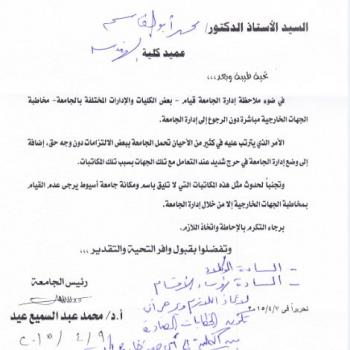 السيد الأستاذ الدكتور/ محمد أبو القاسم
عميد كلية الهندسة
تحية طيبة وبعد،،،
في ضوء ملاحظة إدارة الجامعة قيام - بعض الكليات والإدارات المختلفة بالجامعة- مخاطبة
الجهات الخارجية مباشرة دون الرجوع إلى إدارة الجامعة.
الأمر الذي يترتب عليه في كثير من الأحيان تحمل الجامعة ببعض الالتزامات دون وجه حق، إضافة
إلى وضع إدارة الجامعة في حرج شديد عند التعامل مع تلك الجهات بسبب تلك المكاتبات.
وتجنباً لحدوث مثل هذه المكاتبات التي لا تليق باسم ومكانة جامعة أسيوط يرجى عدم القيام
بمخاطبة الجهات الخارجية إلا من خلال إدارة الجامعة.
برجاء التكرم بالإحاطة واتخاذ اللازم.
وتفضلوا بقبول وافر التحية والتقدير،،،
السادة الوكلاء
السادة رؤساء الأقسام
رئيس الجامعة
تحريراً في ٢٠١٥/٤/٧
أ.د/ محمد عبد السميع عيد
٢٠١٥/٤/٩